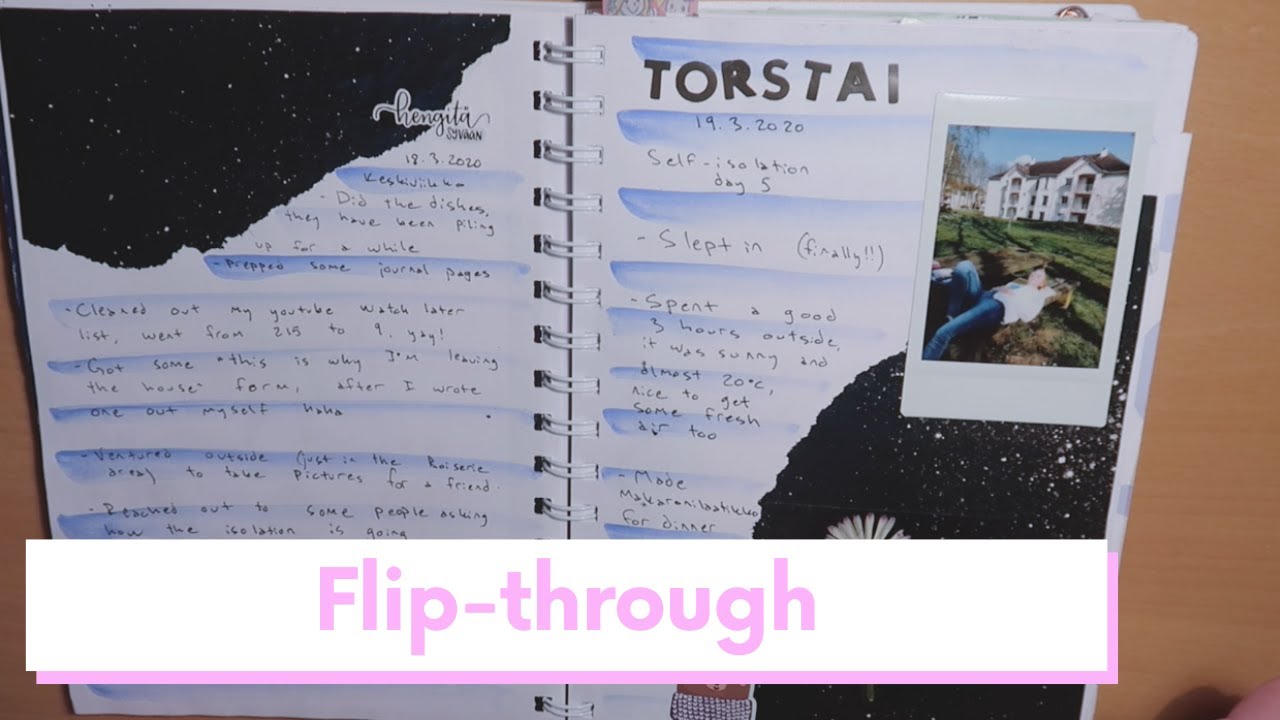 hengitä
SYVÄÄN
18.3.2020
Keskiviikko
- Did the dishes,
they have been piling
up for a while
- Prepped some journal pages
- Cleaned out my youtube watch later
list, went from 215 to 9. yay!
- Got some "this is why I'm leaving
the house" form, after I wrote
one out myself haha
- Ventured outside (just in the Roiserie
area) to take pictures for a friend.
- Reached out to some people asking
how the isolation is going
TORSTAI
19.3.2020
Self-isolation
day 5
- Slept in (finally!!)
- Spent a good
3 hours outside,
it was sunny and
almost 20°C,
nice to get
some fresh
air too
- Made
Makaronilaatikko
for dinner
Flip-through